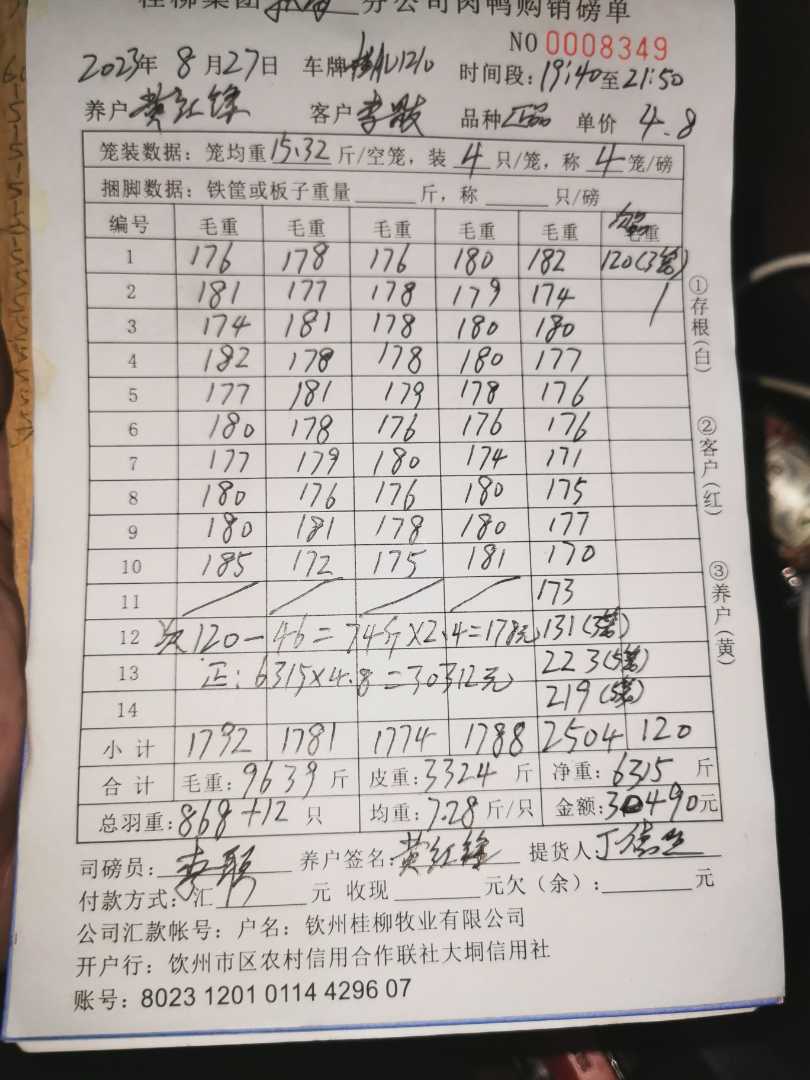 桂柳集团 分公司肉鸭购销磅单
NO 0008349
2023年 8月27日 车牌 时间段:19:40至21:50
养户 黄红锋 客户 李 品种 正品 单价 4.8
笼装数据:笼均重15.32斤/空笼,装 4 只/笼,称 4 笼/磅
捆脚数据:铁筐或板子重量 斤,称 只/磅
编号 毛重 毛重 毛重 毛重 毛重 毛重
1 176 178 176 180 182 120(3笼)
2 181 177 178 179 174
3 174 181 178 180 180
4 182 178 178 180 177
5 177 181 179 178 176
6 180 178 176 176 176
7 177 179 180 174 171
8 180 176 176 180 175
9 180 181 178 180 177
10 185 172 175 181 170
11 173
12 次120-46=74斤×2.4=178元 131(3笼)
13 正:6315×4.8=30312元 223(5笼)
14 219(5笼)
小计 1792 1781 1774 1788 2504 120
合计 毛重:9639斤 皮重:3324斤 净重:6315斤
总羽重:868+12只 均重:7.28斤/只 金额:30490元
司磅员: 养户签名:黄红锋 提货人:
付款方式:汇 元 收现 元欠(余): 元
公司汇款帐号:户名:钦州桂柳牧业有限公司
开户行:钦州市区农村信用合作联社大垌信用社
账号:8023 1201 0114 4296 07
①存根(白)
②客户(红)
③养户(黄)